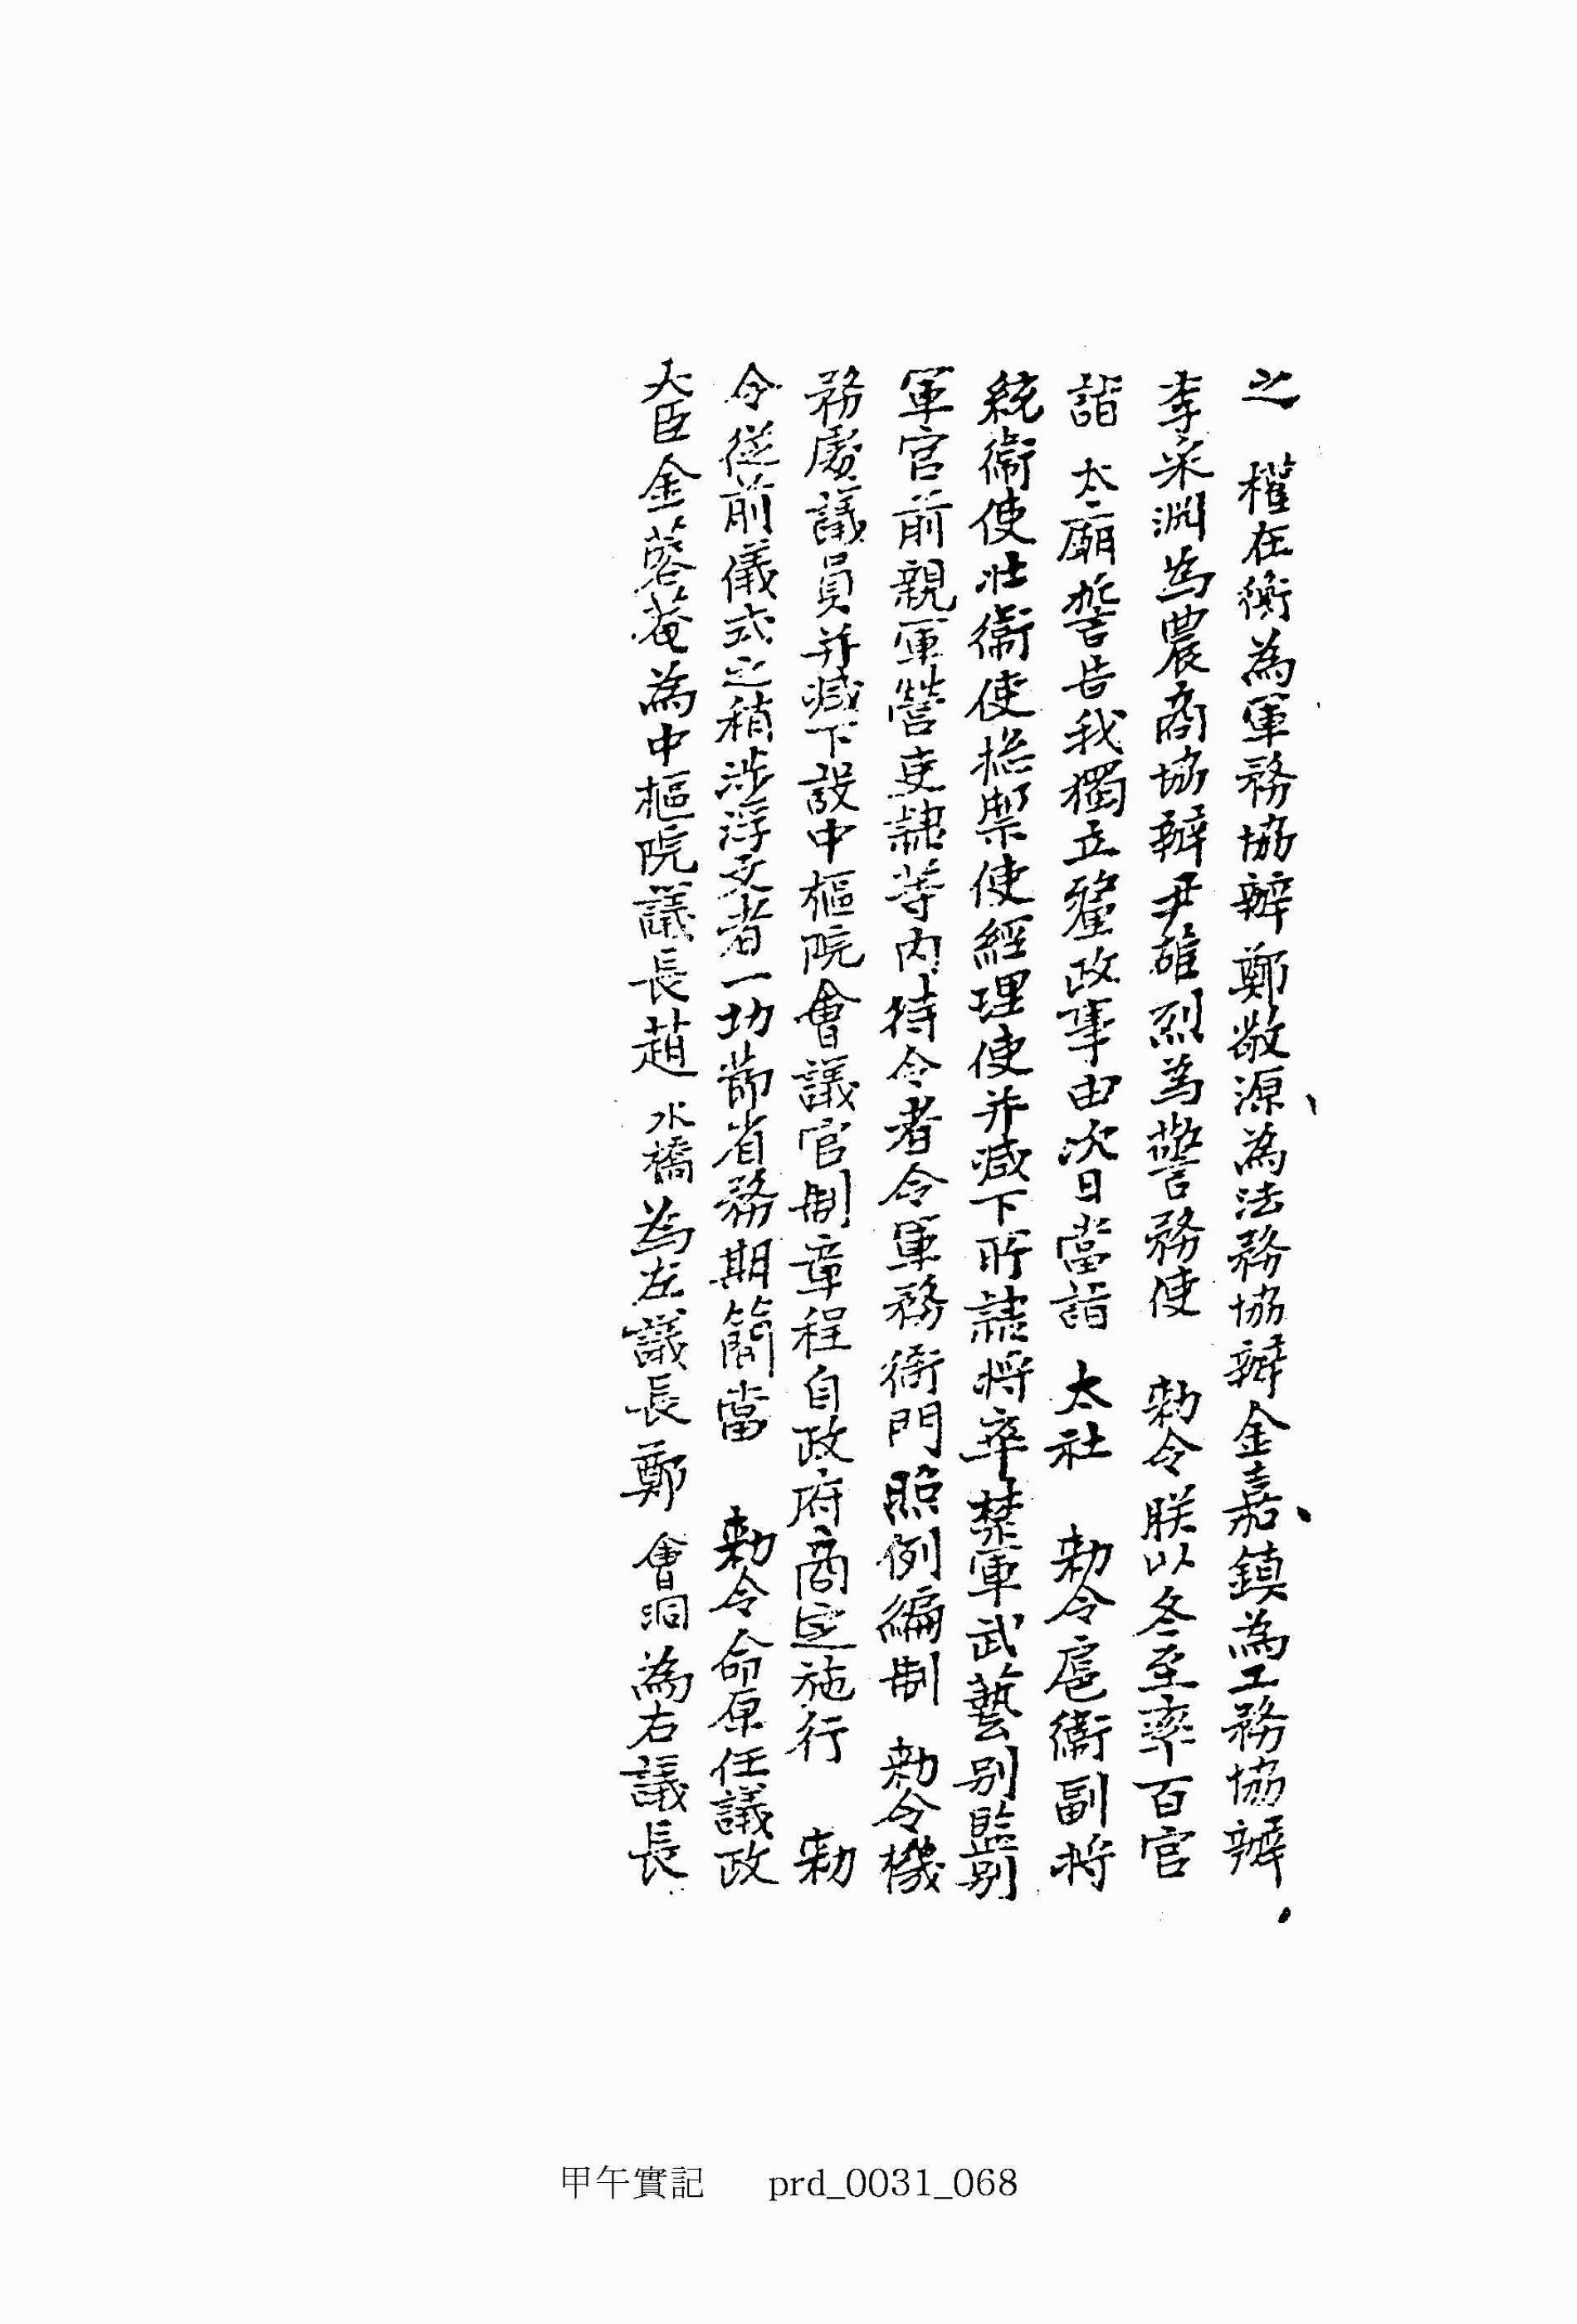 之　權在衡為軍務協辦鄭敬源為法務協辦金嘉鎮為工務協辦
李采淵為農商協辦尹雄烈為警務使　勅令朕以冬至率百官
詣　太廟誓告我獨立釐政事由次日當詣　太社　勅令扈衛副將
統衛使壯衛使摠禦使經理使并减下所隷將卒禁軍武藝別監別
軍官前親軍營吏隷等內待令者令軍務衙門照例編制　勅令機
務處議員并减下設中樞院會議官制章程自政府商定施行　勅
令從前儀式之稍涉浮文者一切節省務期簡當　勅令命原任議政
大臣金蓉菴為中樞院議長趙　水橋為左議長鄭　會洞為右議長
甲午實記　prd_0031_068